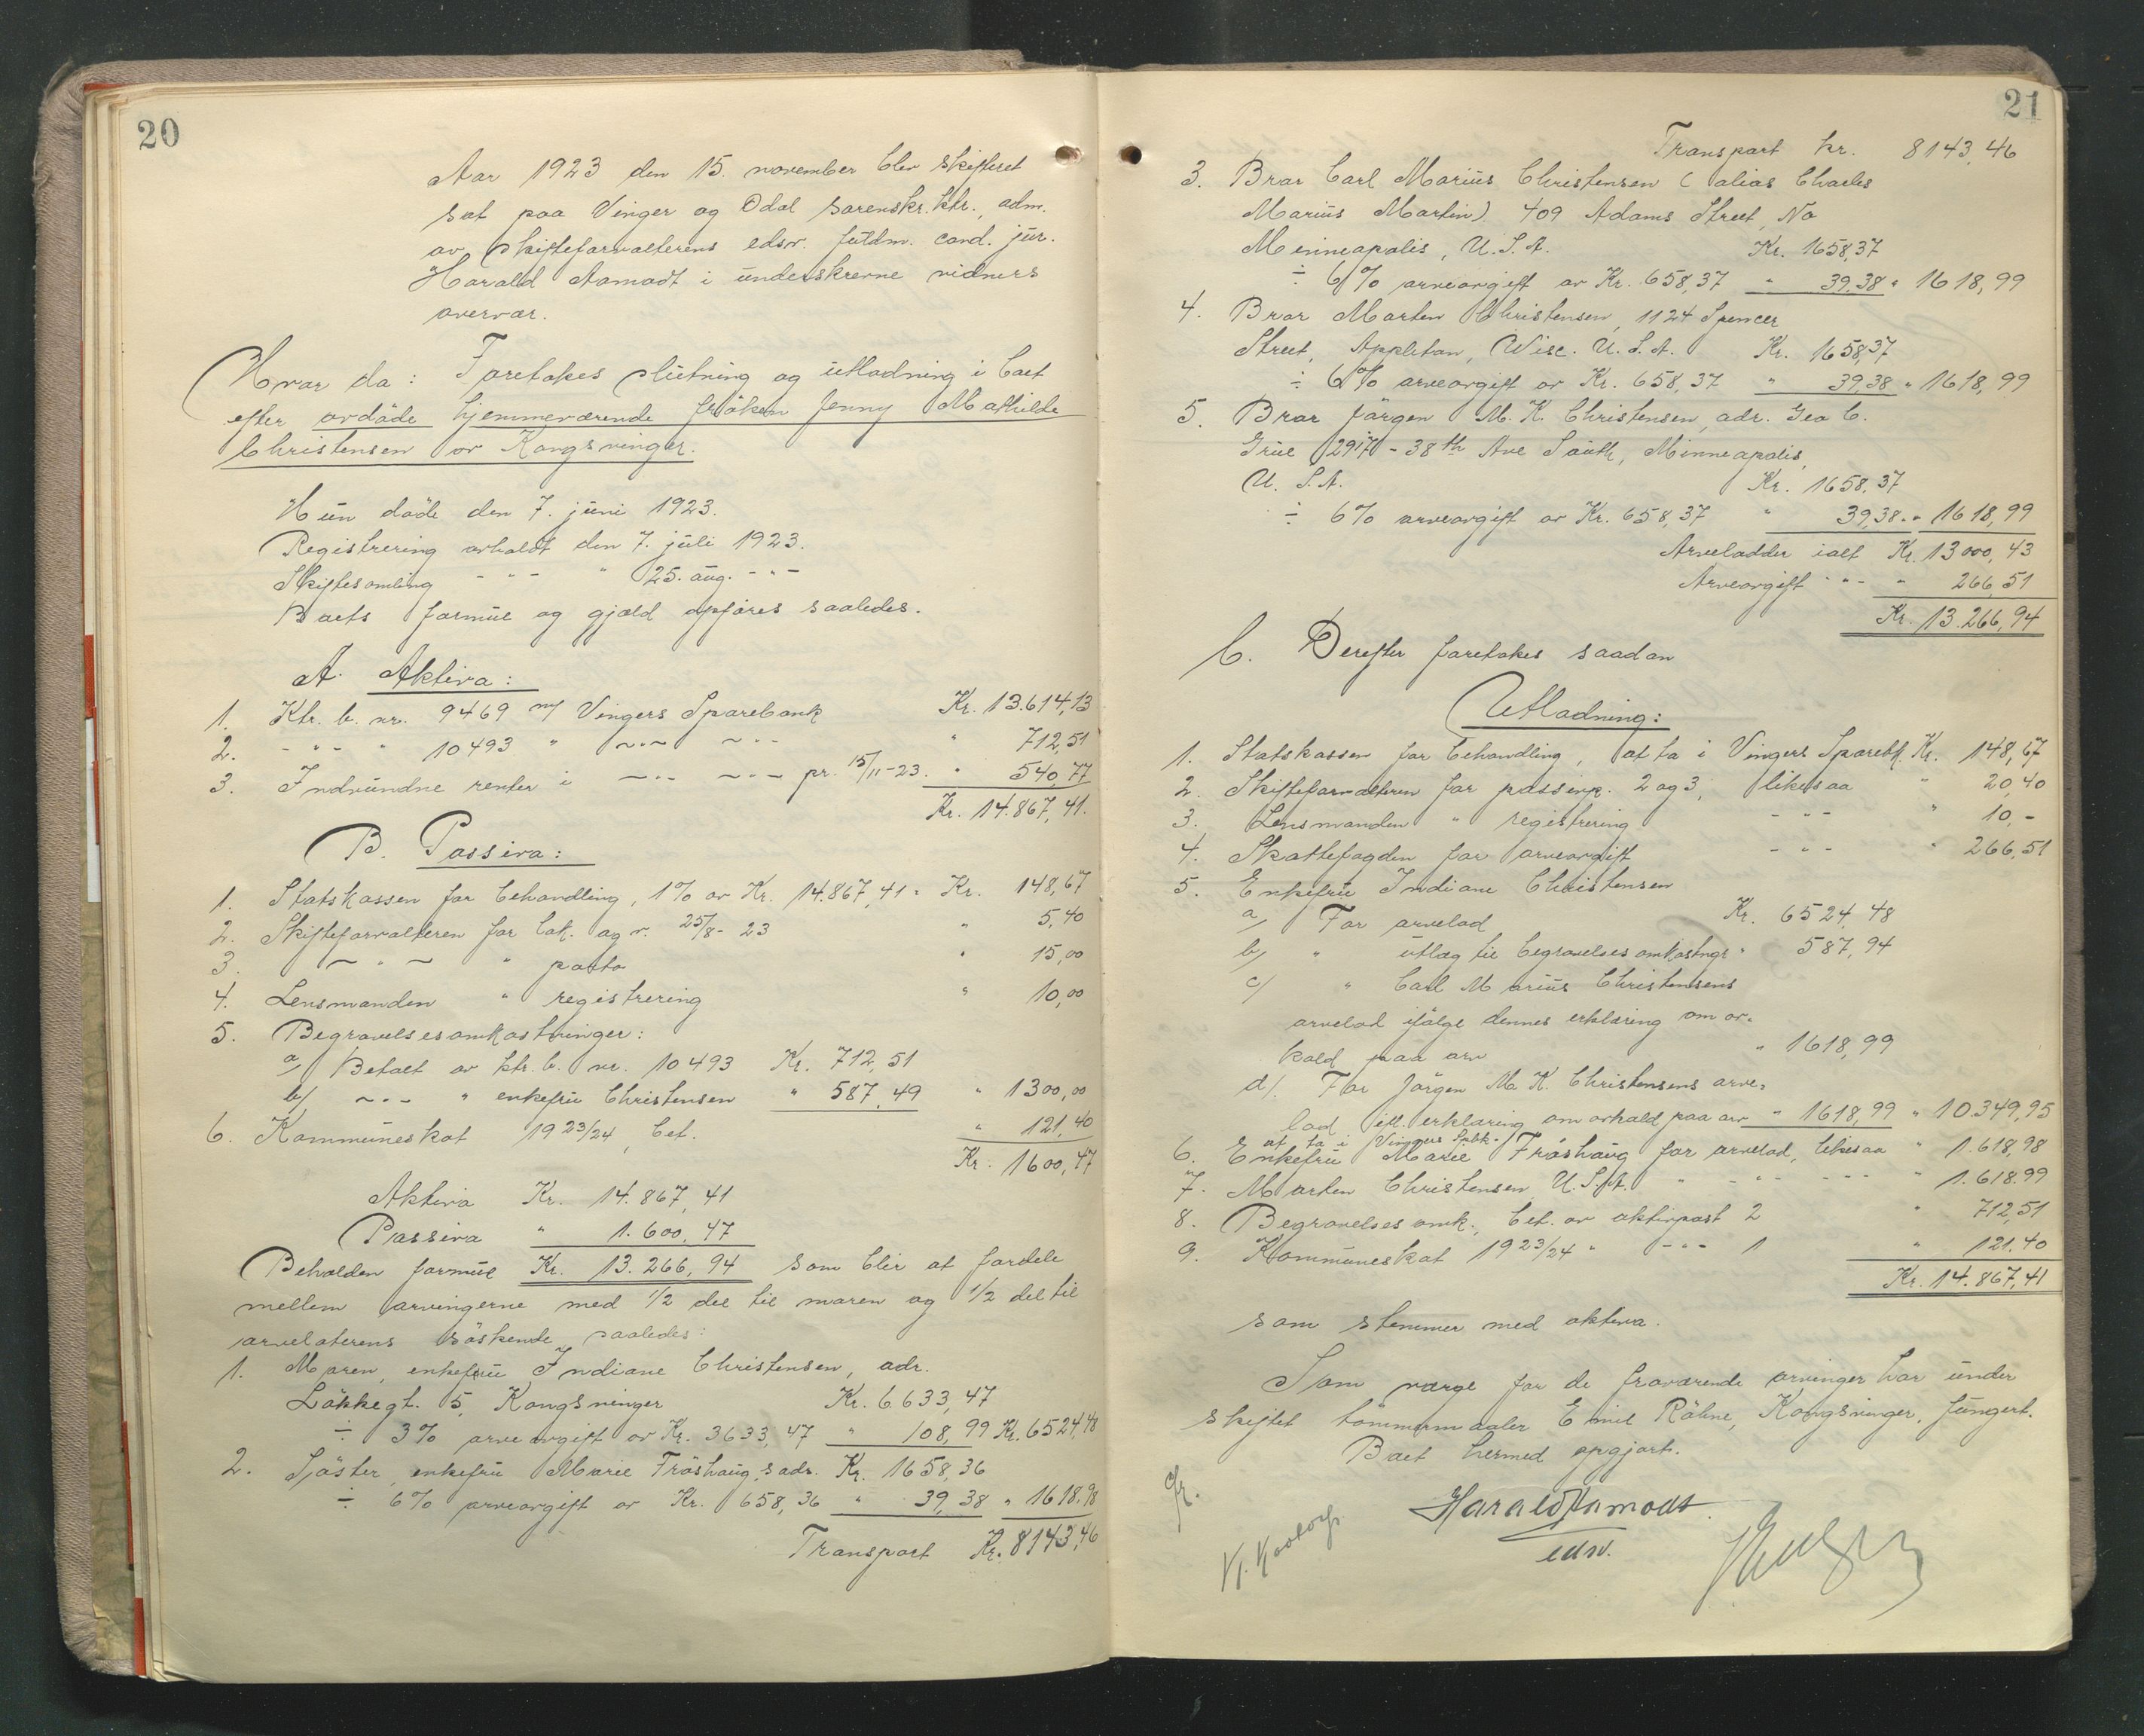 20
Aar 1923 den 15. november blev skifteret
sat paa Vinger og Odal sorenskr.ktr., adm.
av skifteforvalterens edsv. fuldm. cand. jur.
Harald Aamodt i underskrevne vidners
overvær.
Hvor da: Foretokes slutning og utlodning i boet
efter avdöde hjemmeværende fröken Jenny Mathilde
Christensen av Kongsvinger.
Hun döde den 7. juni 1923.
Registrering avholdt den 7. juli 1923.
Skiftesamling - " - " 25. aug. - " -
Boets formue og gjæld opföres saaledes.
A. Aktiva:
1. Ktr. b. nr. 9469 m/ Vingers Sparebank Kr. 13.614,13
2. - " - " 10493 " - " - - " - " 712,51
3. Indvundne renter i - " - - " - pr. 15/11-23. " 540,77
Kr. 14.867,41.
B. Passiva:
1. Statskassen for behandling, 1% av Kr. 14.867,41 = Kr. 148,67
2. Skifteforvalteren for bek. og v. 25/8-23 " 5,40
3. - " - " porto " 15,00
4. Lensmanden " registrering " 10,00
5. Begravelsesomkostninger:
a/ Betalt av ktr. b. nr. 10493 Kr. 712,51
b/ - " - " enkefru Christensen " 587,49 " 1300,00
6. Kommuneskat 1923/24, bet. " 121,40
Kr. 1600,47
Aktiva Kr. 14.867,41
Passiva " 1.600,47
Beholden formue Kr. 13.266,94 som blir at fordele
mellem arvingerne med 1/2 del til moren og 1/2 del til
arvelaterens söskende saaledes:
1. Moren, enkefru Indiane Christensen, adr.
Lökkegt. 5, Kongsvinger Kr. 6.633,47
÷ 3% arveavgift av Kr. 3633,47 " 108,99 Kr. 6524,48
2. Söster, enkefru Marie Fröshaug, s. adr. Kr. 1658,36
÷ 6% arveavgift av Kr. 658,36 " 39,38 " 1618,98
Transport Kr. 8143,46
21
Transport kr. 8143,46
3. Bror Carl Marius Christensen (alias Charles
Marius Martin). 409 Adams Street, No
Minneapolis, U.S.A. Kr. 1658,37
÷ 6% arveavgift av Kr. 658,37 " 39,38 " 1618,99
4. Bror Morten Christensen, 1124 Spencer
Street, Appleton, Wisc. U.S.A. Kr. 1658,37
÷ 6% arveavgift av Kr. 658,37 " 39,38 " 1618,99
5. Bror Jörgen M. K. Christensen, adr. Geo C.
Grue 2917 - 38th Ave South, Minneapolis,
U.S.A. Kr. 1658,37
÷ 6% arveavgift av Kr. 658,37 " 39,38 " 1618,99
Arvelodder ialt Kr. 13000,43
Arveavgift - " - " 266,51
Kr. 13.266,94
C. Derefter foretokes saadan
Utlodning:
1. Statskassen for behandling, at ta i Vingers Sparebk. Kr. 148,67
2. Skifteforvalteren for passivp. 2 og 3, likesaa " 20,40
3. Lensmanden " registrering - " - " 10,-
4. Skattefogden for arveavgift - " - " 266,51
5. Enkefru Indiane Christensen
a/ For arvelod Kr. 6524,48
b/ " utlæg til begravelsesomkostngr " 587,94
c/ " Carl Marius Christensens
arvelod ifölge dennes erklæring om av-
kald paa arv " 1618,99
d/. For Jörgen M. K. Christensens arve-
lod ifl. erklæring om avkald paa arv " 1618,99 " 10.349,95
at ta i Vingers Spbk.
6. Enkefru Marie Fröshaug for arvelod, likesaa " 1.618,98
7. Morten Christensen U.S.A. " - " - - " - " 1.618.99
8. Begravelsesomk., bet. av aktivpost 2 " 712,51
9. Kommuneskat 1923/24 " - " - 1 " 121.40
Kr. 14.867,41
som stemmer med aktiva.
Som verge for de fraværende arvinger har under
skiftet tömmermægler Emil Röhne, Kongsvinger, fungert.
Boet hermed opgjort.
Harald Aamodt
edsv.